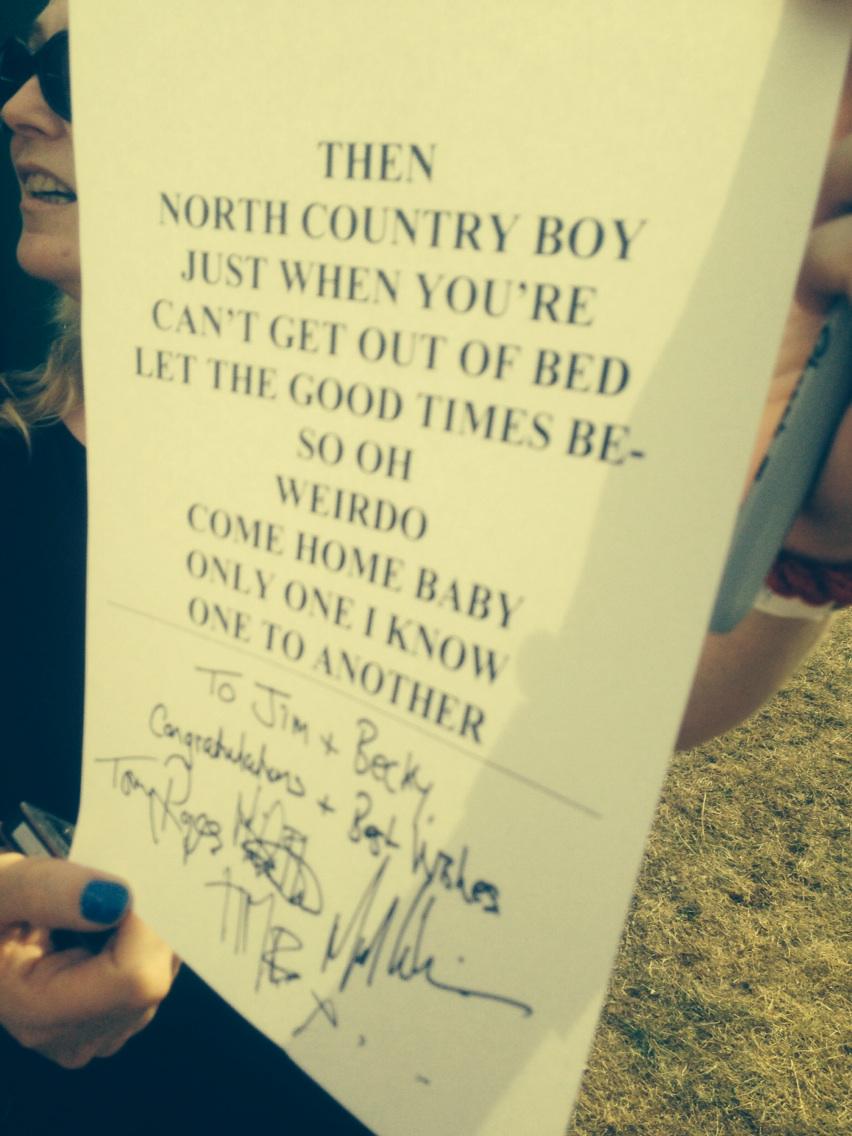 THEN
NORTH COUNTRY BOY
JUST WHEN YOU'RE
CAN'T GET OUT OF BED
LET THE GOOD TIMES BE-
SO OH
WEIRDO
COME HOME BABY
ONLY ONE I KNOW
ONE TO ANOTHER
To Jim + Becky.
Congratulations + Best Wishes
Tony Rogers
TIM B
X.